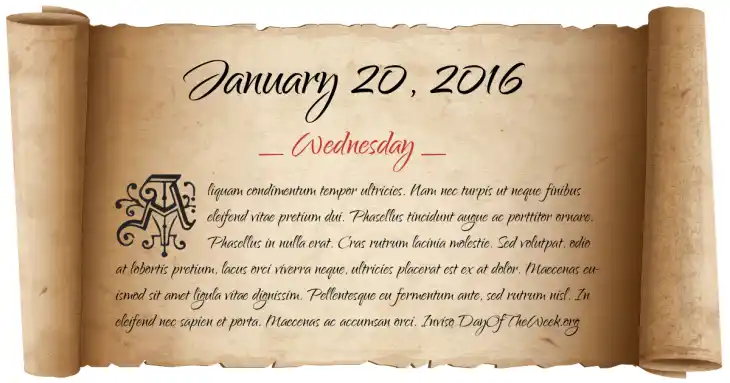 January 20, 2016
_ Wednesday _
Aliquam condimentum tempor ultricies. Nam nec turpis ut neque finibus
eleifend vitae pretium dui. Phasellus tincidunt augue ac porttitor ornare.
Phasellus in nulla erat. Cras rutrum lacinia molestie. Sed volutpat, odio
at lobortis pretium, lacus orci viverra neque, ultricies placerat est ex at dolor. Maecenas eu-
ismod sit amet ligula vitae dignissim. Pellentesque eu fermentum ante, sed rutrum nisl. In
eleifend nec sapien et porta. Maecenas ac accumsan orci. Inviso DayOfTheWeek.org